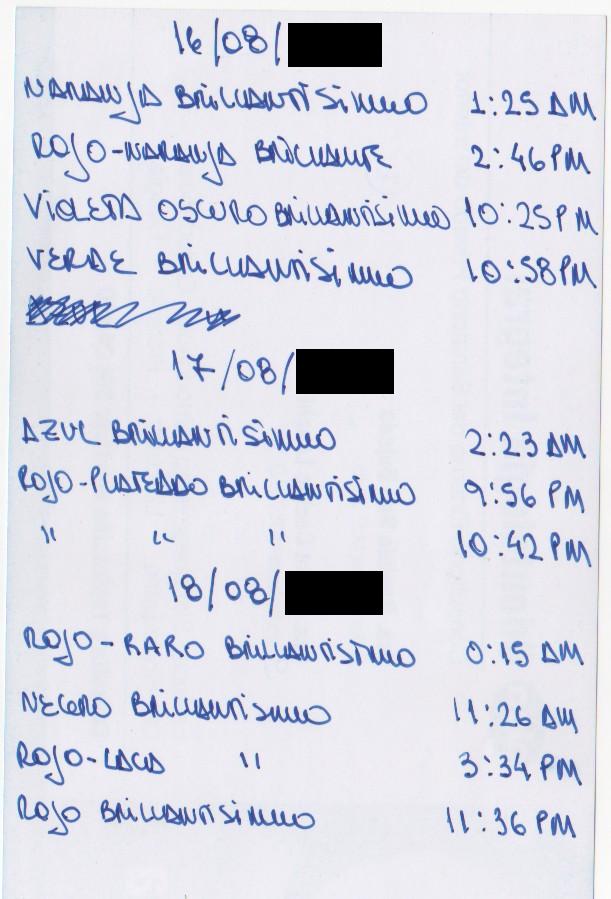 16/08/
NARANJA BRILLANTÍSIMO 1:25 AM
ROJO-NARANJA BRILLANTE 2:46 PM
VIOLETA OSCURO BRILLANTÍSIMO 10:25 PM
VERDE BRILLANTÍSIMO 10:58 PM
17/08/
AZUL BRILLANTÍSIMO 2:23 AM
ROJO-PLATEADO BRILLANTÍSIMO 9:56 PM
" " " 10:42 PM
18/08/
ROJO-RARO BRILLANTÍSIMO 0:15 AM
NEGRO BRILLANTÍSIMO 11:26 AM
ROJO-LACA " 3:34 PM
ROJO BRILLANTÍSIMO 11:36 PM